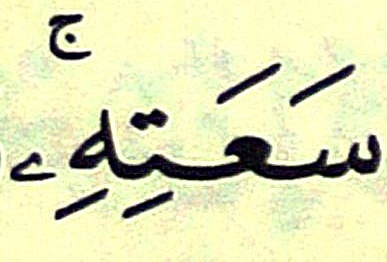 سَعَتِهِۦۚ